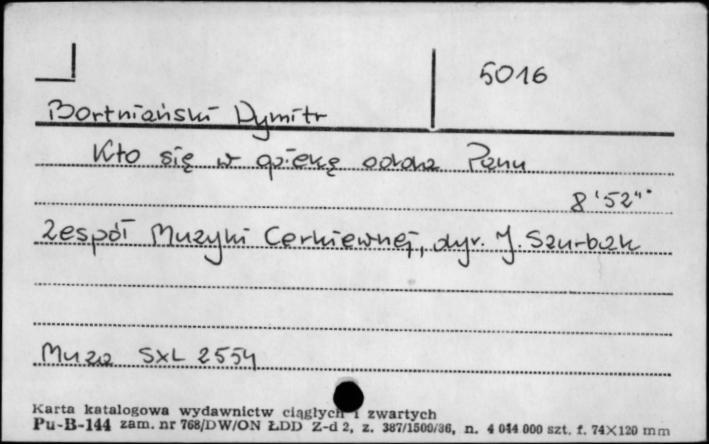 5016
Bortniański Dymitr
Kto się w opiekę odda Panu
8'52"
Zespół Muzyki Cerkiewnej, dyr. J. Szurbak
Muza SXL 2554
Karta katalogowa wydawnictw ciągłych i zwartych
Pu-B-144 zam. nr 768/DW/ON ŁDD Z-d 2, z. 387/1500/86, n. 4 044 000 szt. f. 74×120 mm